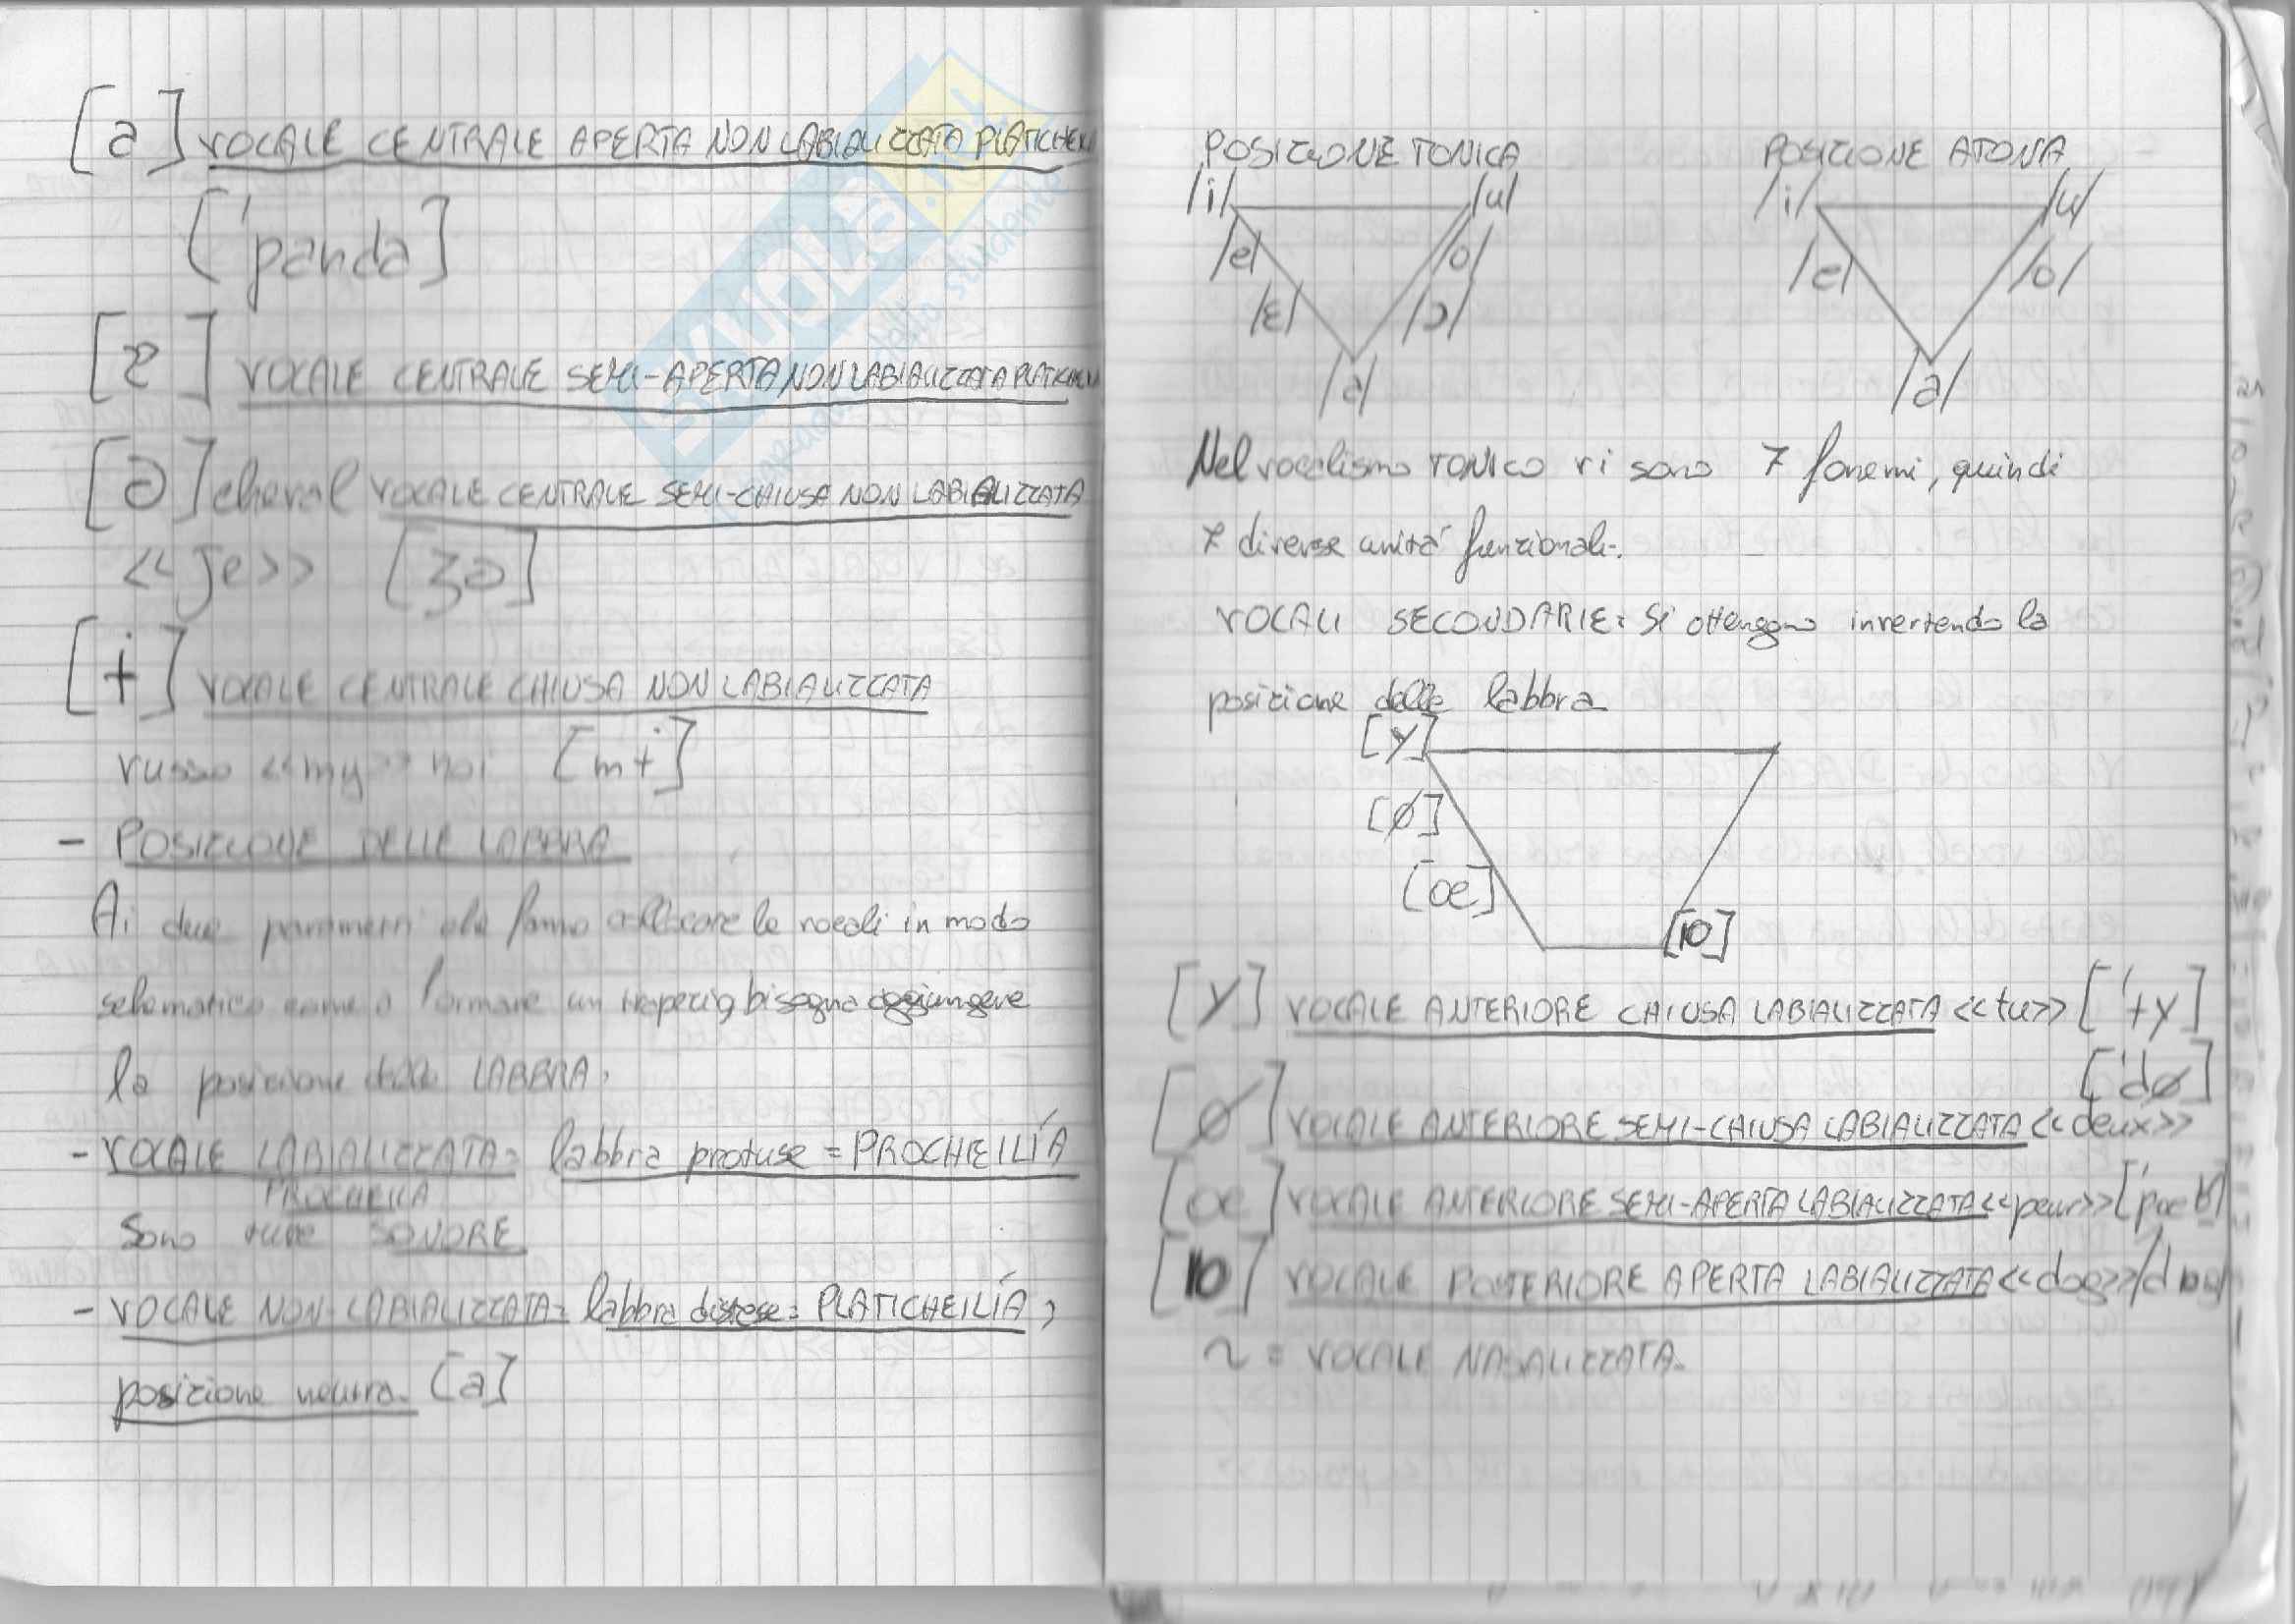 [a] VOCALE CENTRALE APERTA NON LABIALIZZATA PLATICHEI
['panda]
[ɐ] VOCALE CENTRALE SEMI-APERTA NON LABIALIZZATA PLATICHEI
[ə] cheval VOCALE CENTRALE SEMI-CHIUSA NON LABIALIZZATA
<<je>> [ʒə]
[ɨ] VOCALE CENTRALE CHIUSA NON LABIALIZZATA
russo <<my>> noi [mɨ]
- POSIZIONE DELLE LABBRA
Ai due parametri che fanno collocare le vocali in modo
schematico come a formare un trapezio, bisogna aggiungere
la posizione delle LABBRA.
- VOCALE LABIALIZZATA= labbra protuse = PROCHEILÍA
PROCHEILA
Sono tutte SONORE
- VOCALE NON-LABIALIZZATA= labbra distese= PLATICHEILÍA,
posizione neutra. [a]
POSIZIONE TONICA
/i/ /u/
/e/ /o/
/ɛ/ /ɔ/
/a/
POSIZIONE ATONA
/i/ /u/
/e/ /o/
/a/
Nel vocalismo TONICO vi sono 7 fonemi, quindi
7 diverse unità funzionali.
VOCALI SECONDARIE= Si ottengono invertendo la
posizione delle labbra
[y]
[ø]
[œ]
[ɒ]
[y] VOCALE ANTERIORE CHIUSA LABIALIZZATA <<tu>> ['ty]
['dø]
[ø] VOCALE ANTERIORE SEMI-CHIUSA LABIALIZZATA <<deux>>
[œ] VOCALE ANTERIORE SEMI-APERTA LABIALIZZATA <<peur>> ['pœʁ]
[ɒ] VOCALE POSTERIORE APERTA LABIALIZZATA <<dog>> /dɒg/
~ = VOCALE NASALIZZATA.
SKUOLA.net